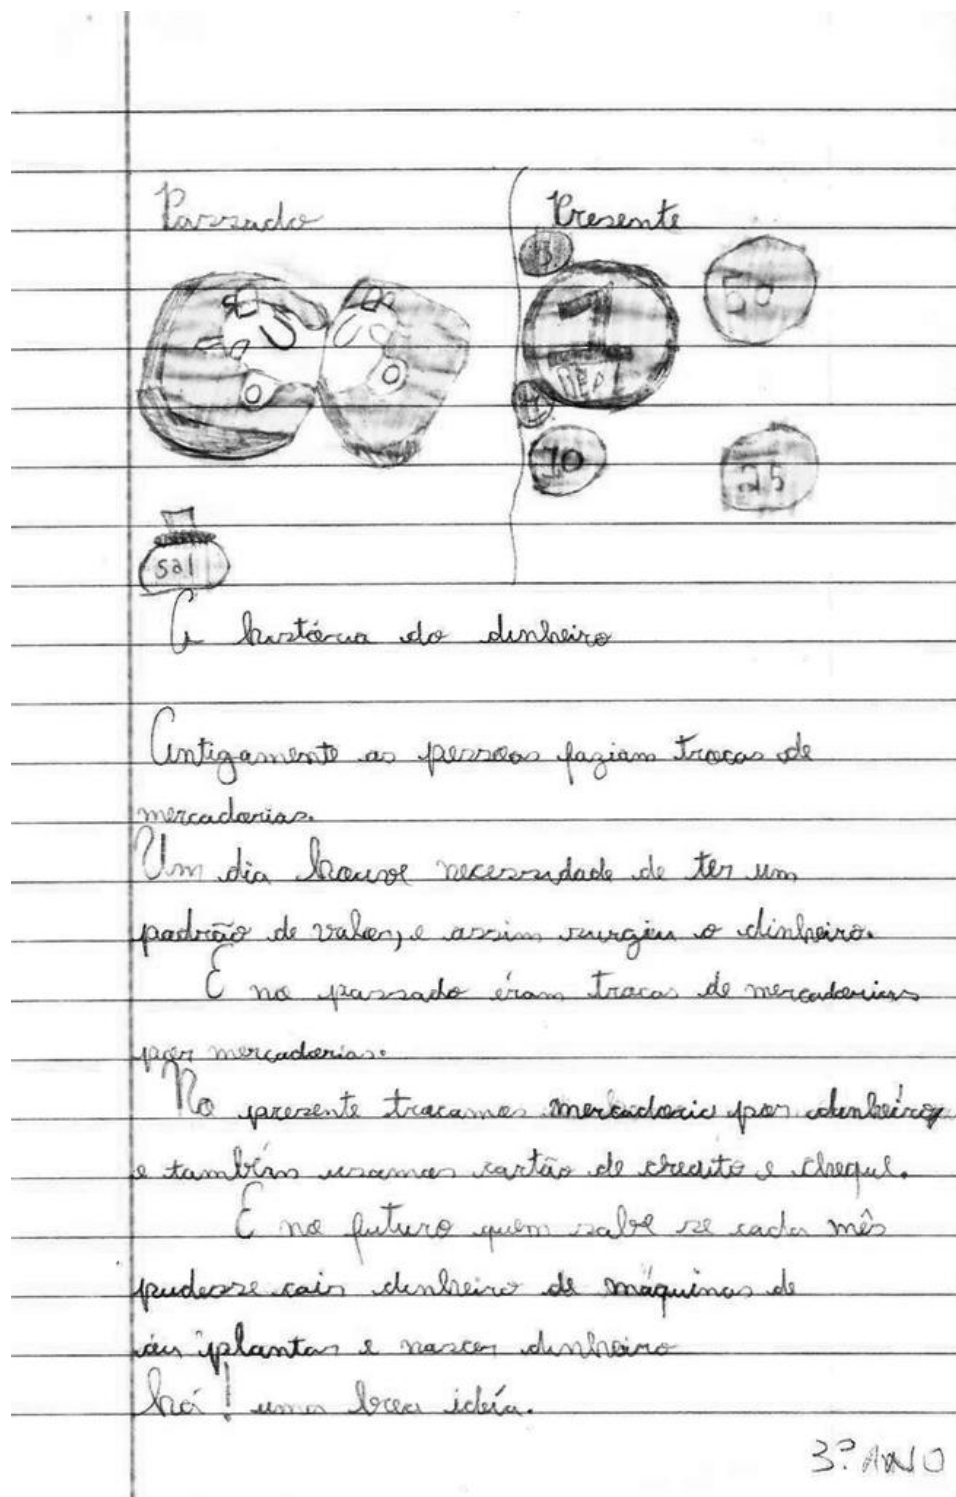 Passado
Presente
5
1
REAL
50
10
25
sal
A história do dinheiro
Antigamente as pessoas faziam trocas de
mercadorias.
Um dia houve necessidade de ter um
padrão de valor, e assim surgiu o dinheiro.
E no passado éram trocas de mercadorias
por mercadorias.
No presente trocamos mercadoria por dinheiro,
e também usamos cartão de credito e cheque.
E no futuro quem sabe se cada mês
pudesse sair dinheiro de máquinas de
plantar e nascer dinheiro
há! uma boa idéia.
3º ANO